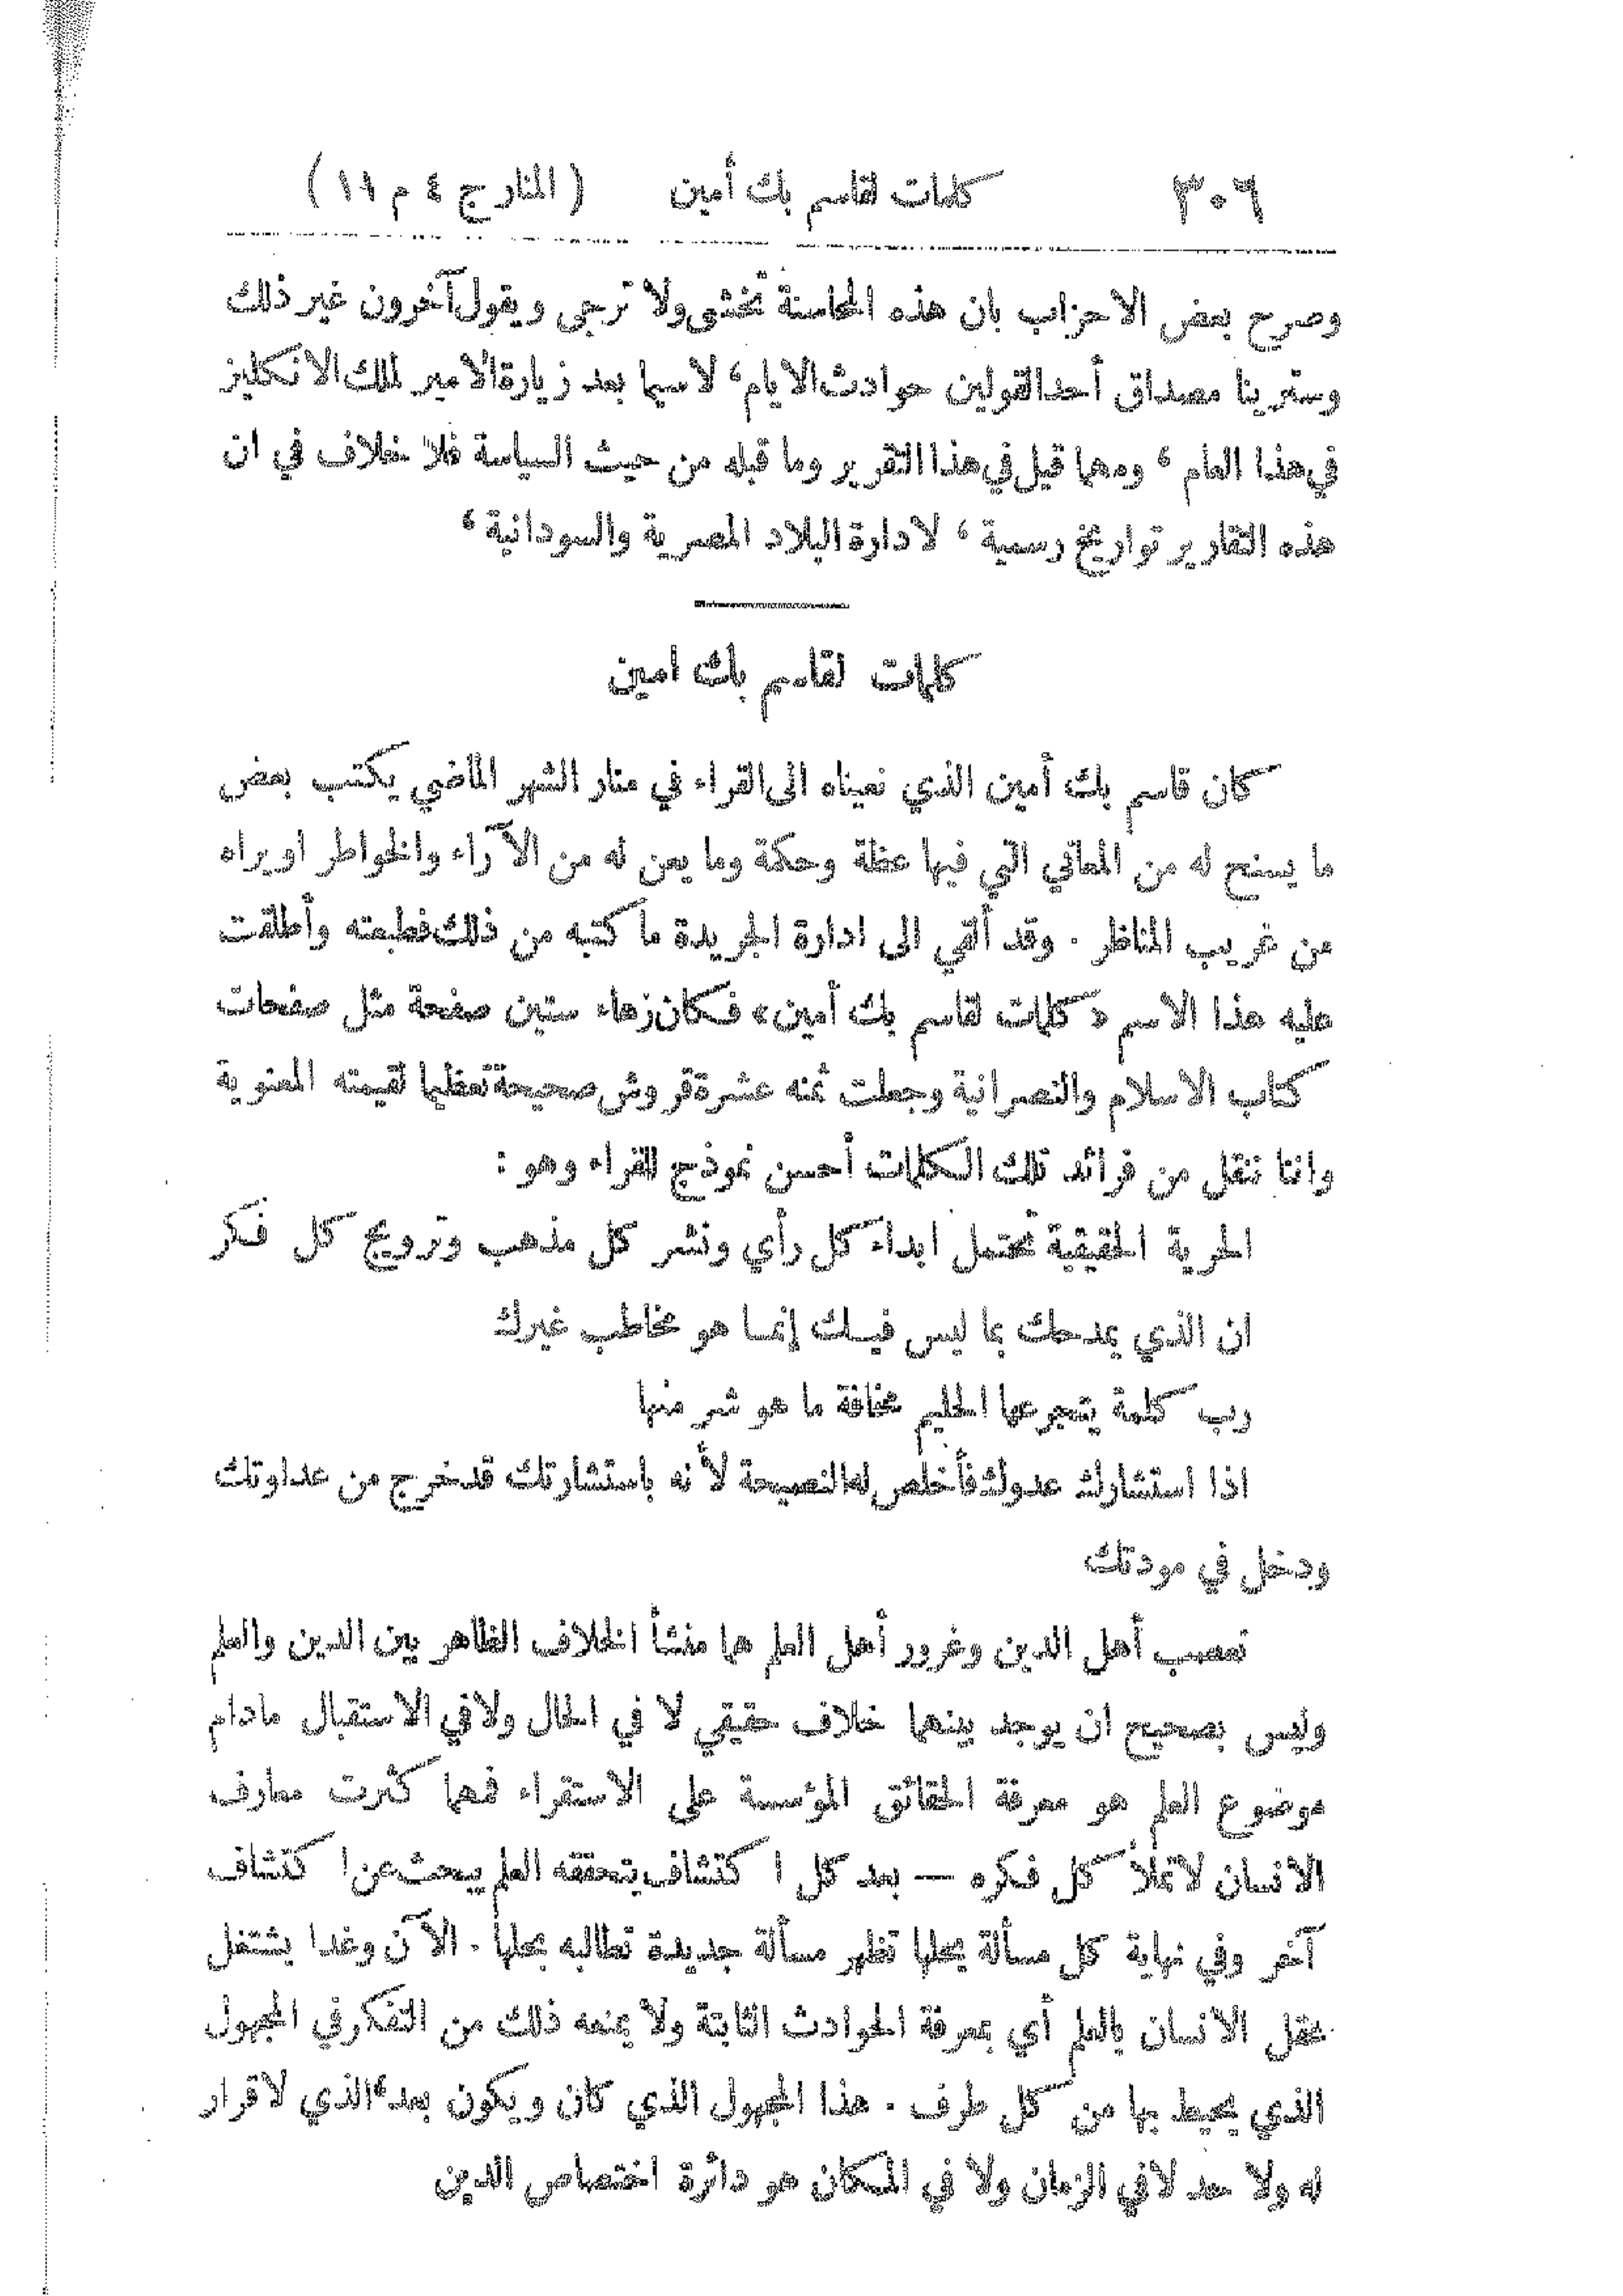 ٣٠٦ كلمات لقاسم بك أمين ( المنار ج ٤ م ١١ )
وصرح بعض الاحزاب بان هذه المحاسنة تخشى ولا ترجى ويقول آخرون غير ذلك
وسترينا مصداق أحد القولين حوادث الايام، لاسيما بعد زيارة الامير لملك الانكليز
في هذا العام ، ومهما قيل في هذا التقرير وما قبله من حيث السياسة فلا خلاف في ان
هذه التقارير تواريخ رسمية ، لادارة البلاد المصرية والسودانية ،
كلمات لقاسم بك امين
كان قاسم بك أمين الذي نعيناه الى القراء في منار الشهر الماضي يكتب بعض
ما يسنح له من المعاني التي فيها عظة وحكمة وما يعن له من الآراء والخواطر او يراه
من غريب المناظر . وقد ألقي الى ادارة الجريدة ما كتبه من ذلك فطبعته وأطلقت
عليه هذا الاسم « كلمات لقاسم بك أمين» فكان زهاء ستين صفحة مثل صفحات
كتاب الاسلام والنصرانية وجعلت ثمنه عشرة قروش صحيحة تعظيما لقيمته المعنوية
واننا ننقل من فرائد تلك الكلمات أحسن نموذج للقراء وهو :
الحرية الحقيقية تحتمل ابداء كل رأي ونشر كل مذهب وترويج كل فكر
ان الذي يمدحك بما ليس فيك إنما هو مخاطب غيرك
رب كلمة يتجرعها الحليم مخافة ما هو شر منها
اذا استشارك عدوك فأخلص له النصيحة لأنه باستشارتك قد خرج من عداوتك
ودخل في مودتك
تعصب أهل الدين وغرور أهل العلم هما منشأ الخلاف الظاهر بين الدين والعلم
وليس بصحيح ان يوجد بينهما خلاف حقيقي لا في الحال ولا في الاستقبال مادام
موضوع العلم هو معرفة الحقائق المؤسسة على الاستقراء فمهما كثرت معارف
الانسان لا تملأ كل فكره — بعد كل اكتشاف يتحققه العلم يبحث عن اكتشاف
آخر وفي نهاية كل مسألة يحلها تظهر مسألة جديدة تطالبه بحلها . الآن وغدا يشتغل
عقل الانسان بالعلم أي بمعرفة الحوادث الثابتة ولا يمنعه ذلك من التفكر في المجهول
الذي يحيط بها من كل طرف . هذا المجهول الذي كان ويكون بعد، الذي لا قرار
له ولا حد لا في الزمان ولا في المكان هو دائرة اختصاص الدين